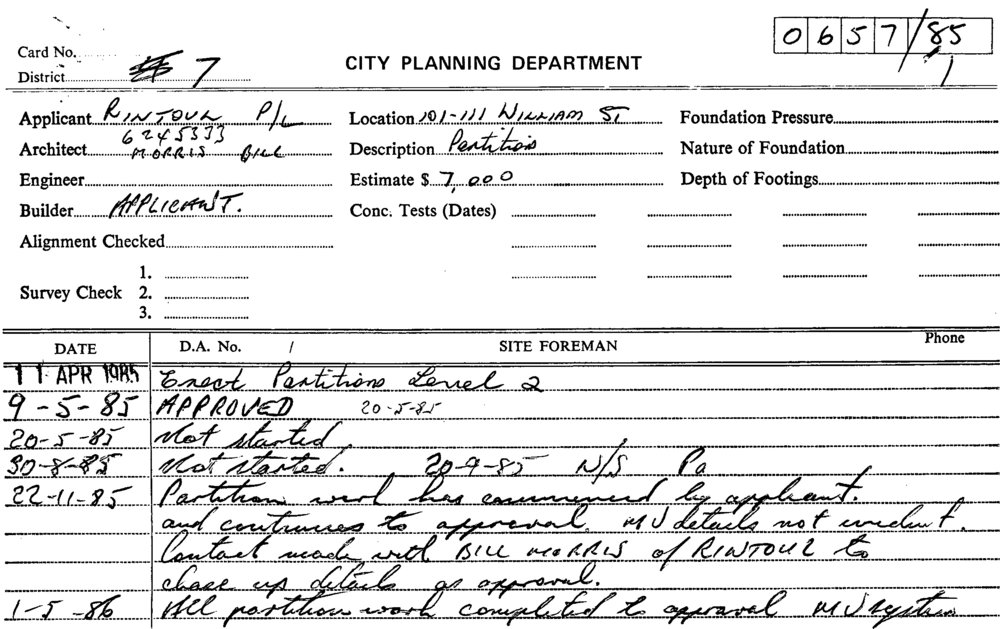 0657/85
Card No.
District 7
1
CITY PLANNING DEPARTMENT
Applicant RINTOUL P/L
Location 101-111 WILLIAM ST
Foundation Pressure
6245333
Architect MORRIS BILL
Description Partitions
Nature of Foundation
Engineer
Estimate $ 7,000
Depth of Footings
Builder APPLICANT.
Conc. Tests (Dates)
Alignment Checked
1.
Survey Check 2.
3.
DATE D.A. No. / SITE FOREMAN Phone
11 APR 1985 Erect Partitions Level 2
9-5-85 APPROVED 20-5-85
20-5-85 Not started
30-8-85 Not started. 20-9-85 N/S Pa
22-11-85 Partition work has commenced by applicant.
and continues to approval. MV details not evident.
Contact made with BILL MORRIS of RINTOUL to
chase up details as approval.
1-5-86 All partition work completed to approval MV system